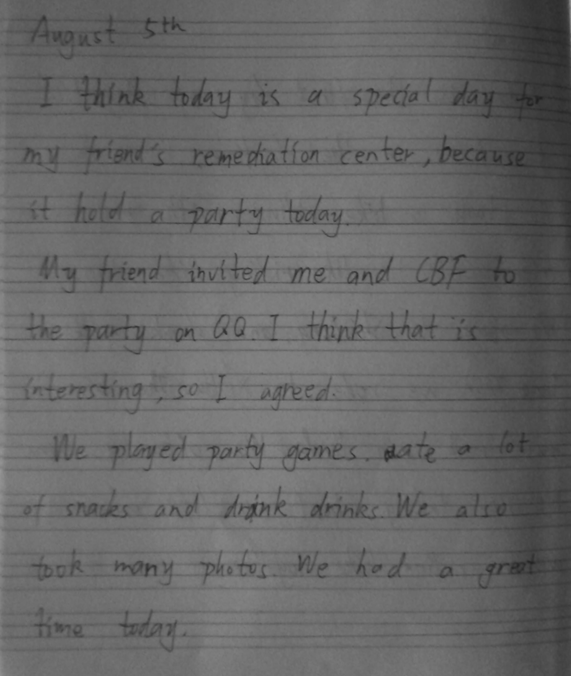 August 5th
I think today is a special day for
my friend's remediation center, because
it hold a party today.
My friend invited me and CBF to
the party on QQ. I think that is
interesting, so I agreed.
We played party games. ate a lot
of snacks and drink drinks. We also
took many photos. We had a great
time today.